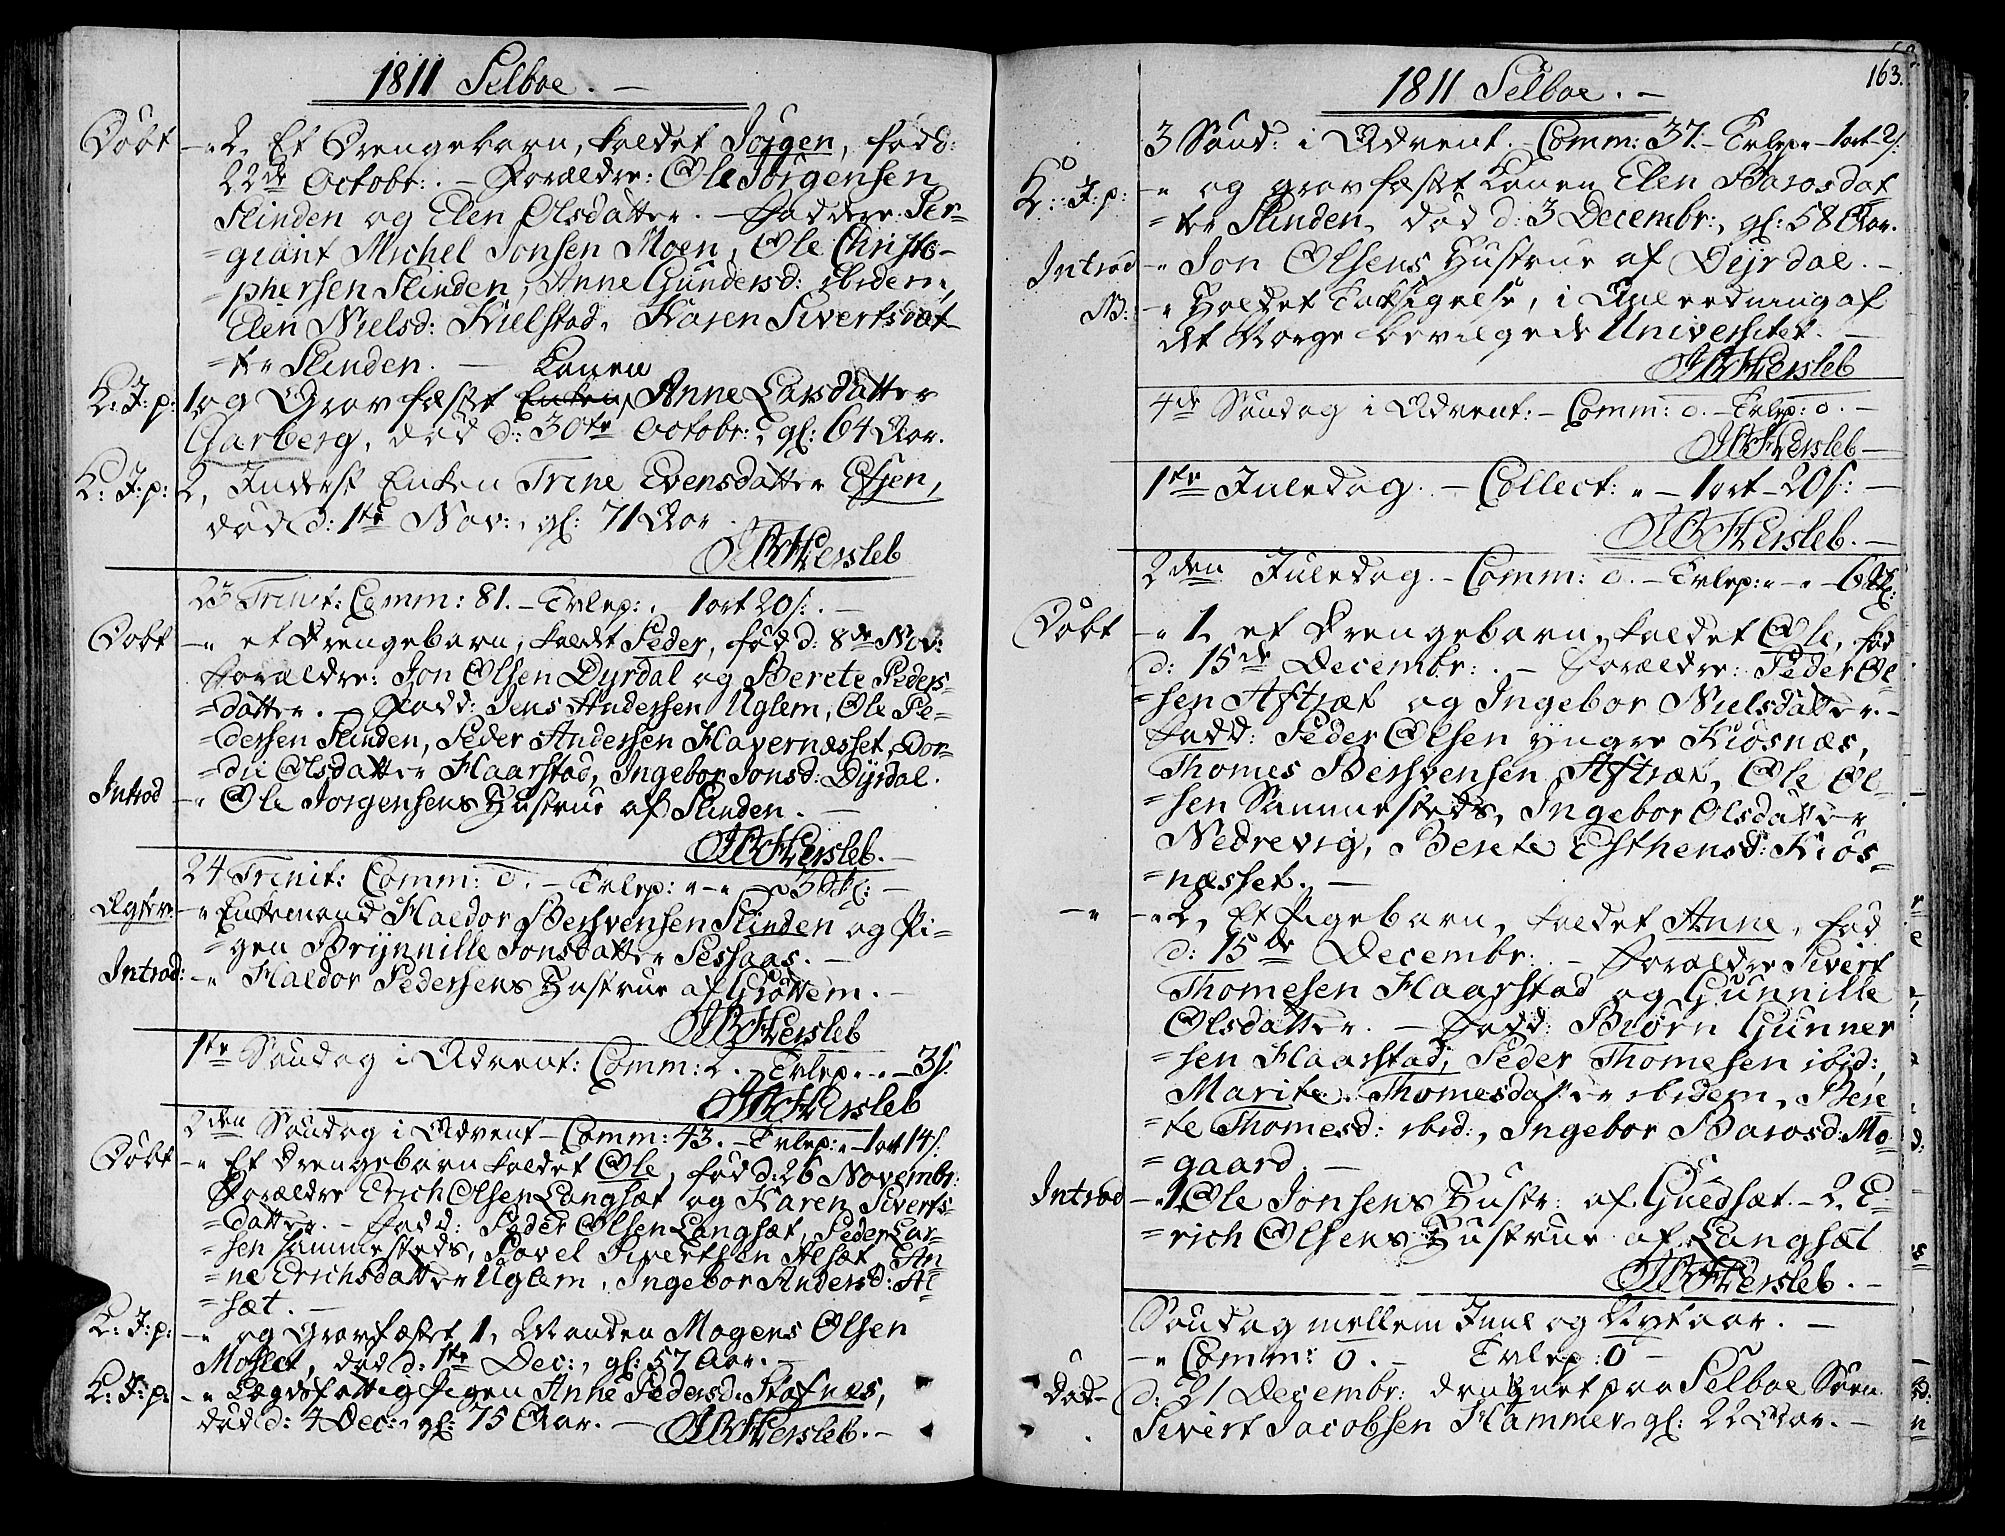 1811 Selboe. —
Döbt —„ 2, Et Drengebarn, kaldet Jörgen, född:
22de Octobr: . — Forældre: Ole Jörgensen
Slinden og Elen Olsdatter. — Faddere: Ser=
=giant Michel Jonsen Moen, Ole Christo=
=phersen Slinden, Anne Gundersd: ibidem,
Elen Nielsd: Kielstad, Karen Sivertsdat
=ter Slinden. — Konen
K: J: p: 1, og Gravfæstet Enken, Anne Larsdatter
Garberg, död d: 30te Octobr:, gl: 64 Aar.
K: J: p: 2, Inderst Enken Trine Evensdatter Efjen,
död d: 1te Nov:, gl: 71 Aar.
Hersleb
23 Trinit: Comm: 81. — Tvlep: „ 1 ort 20 s: . —
Döbt —„ et Drengebarn, kaldt Peder, föd d: 8de Nov:
Forældre: Jon Olsen Dyrdal og Berete Peders=
=datter. — Fadd: Jens Andersen Uglem, Ole Pe=
=dersen Slinden, Peder Andersen Havernæsset, Dor=
=die Olsdatter Haarstad, Ingebor Jonsd: Dyrdal.
Introd —„ Ole Jörgensens Hustrue af Slinden. —
Hersleb. —
24 Trinit: Comm: o. — Tvlep: „—„ 3 Sk: —
Ægtev: —„ Enkemand Haldor Bersvensen Slinden og Pi=
=gen Brynnille Jonsdatter Sessaas. —
Introd: —„ Haldor Pedersens Hustrue af Gröttem. —
Hersleb
1te Söndag i Advent: Comm: 2. — Tvlep. „—3 s:
Hersleb
2den Söndag i Advent — Comm: 43. — Tvlep: „ — 1 ort 14 s:
Döbt —„ Et Drengebarn kaldet Ole, föd d: 26 Novembr:
Forældre Erich Olsen Langsæt og Karen Siverts=
=datter. — Fadd: Peder Olsen Langsæt, Peder Lar=
=sen sammesteds, Povel Sivertsen Alsæt, An
=ne Erichsdatter Uglem, Ingebor Andersd: Al=
=sæt. —
K: J: p: —„ og Gravfæstet 1, Manden Mogens Olsen
Moslet, död d: 1te Dec:, gl: 57 Aar. —
K: J: p: —„ Lægdsfattig Pigen Anne Pedersd: Stafnes,
död d: 4 Dec:, gl: 75 Aar. — Hersleb. —
163.
1811 Selboe. —
3 Sönd: i Advent. — Comm: 37. — Tvlep. — 1 ort 2 s:
K: J: p: —„ og gravfæstet Konen Elen Barosdat
=ter Slinden, död d: 3 Decembr:, gl: 58 Aar.
Introd —„ Jon Olsens Hustrue af Dyrdal. —
NB: —„ Holdet Taksigelse, i Anledning af
det Norge bevilgede Universitet. —
Hersleb
4de Söndag i Advent: — Comm: o. — Tvlep: o. —
Hersleb —
1te Juledag. — Collect: „ — 1 ort — 20 s: —
Hersleb. —
2den Juledag. — Comm: o. — Tvlep: „—„ — 6 Sk:
Döbt —„ 1, et Drengebarn, kaldet Ole, föd
d: 15de Decembr: . — Forældre: Peder Ol=
=sen Aftræt og Ingebor Nielsdatter. —
Fadd: Peder Olsen yngre Kiösnæs,
Thomes Bersvensen Aftræt, Ole Ol=
=sen Sammesteds, Ingebor Olsdatter
Nedrevig, Berete Esthensd: Kiös=
=næsset. —
—„ —„ 2, Et Pigebarn, kaldet Anne, föd
d: 15de Decembr: . — Forældre Sivert
Thomesen Haarstad og Gunnille
Olsdatter. — Fadd: Biörn Gunner
=sen Haarstad, Peder Thomesen ibid:,
Marite Thomesdatter ibidem, Bere
=te Thomesd: ibid:, Ingebor Barosd: Mo=
=gaard. —
Introd —„ 1, Ole Jonsens Hustr: af Guedsæt. — 2, E=
=rich Olsens Hustrue af Langsæt
Hersleb. —
Söndag mellem Juul og Nytaar. —
—„ Comm: o. — Tvlep: o —
Död — d: 21 Decembr: druknet paa Selboe Söen
Sivert Jacobsen Hammer, gl: 22 Aar. —